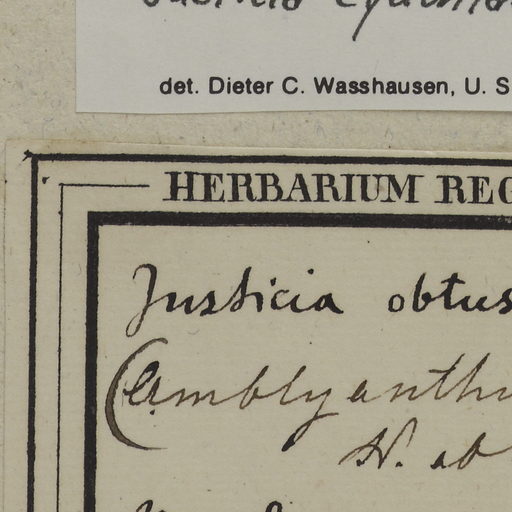 det. Dieter C. Wasshausen, U. S
HERBARIUM REG
Justicia obtus
(Amblyanthu
N. ab